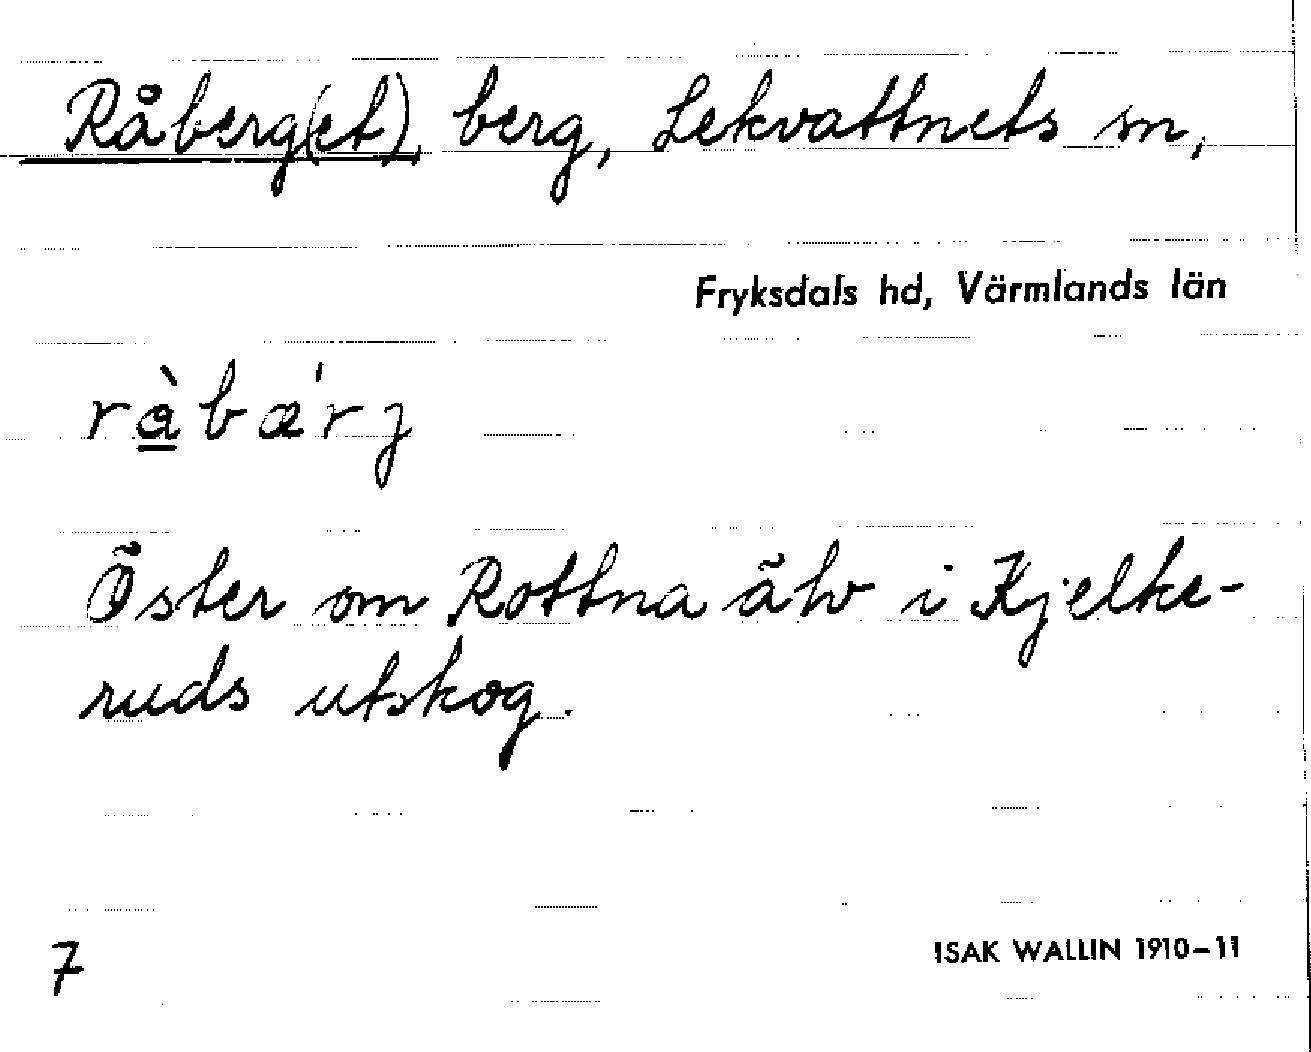 Råberg(et), berg, Lekvattnets sn,
Fryksdals hd, Värmlands län
ràbæ'rj
Öster om Rottna älv i Kjelke-
ruds utskog.
7
ISAK WALLIN 1910-11